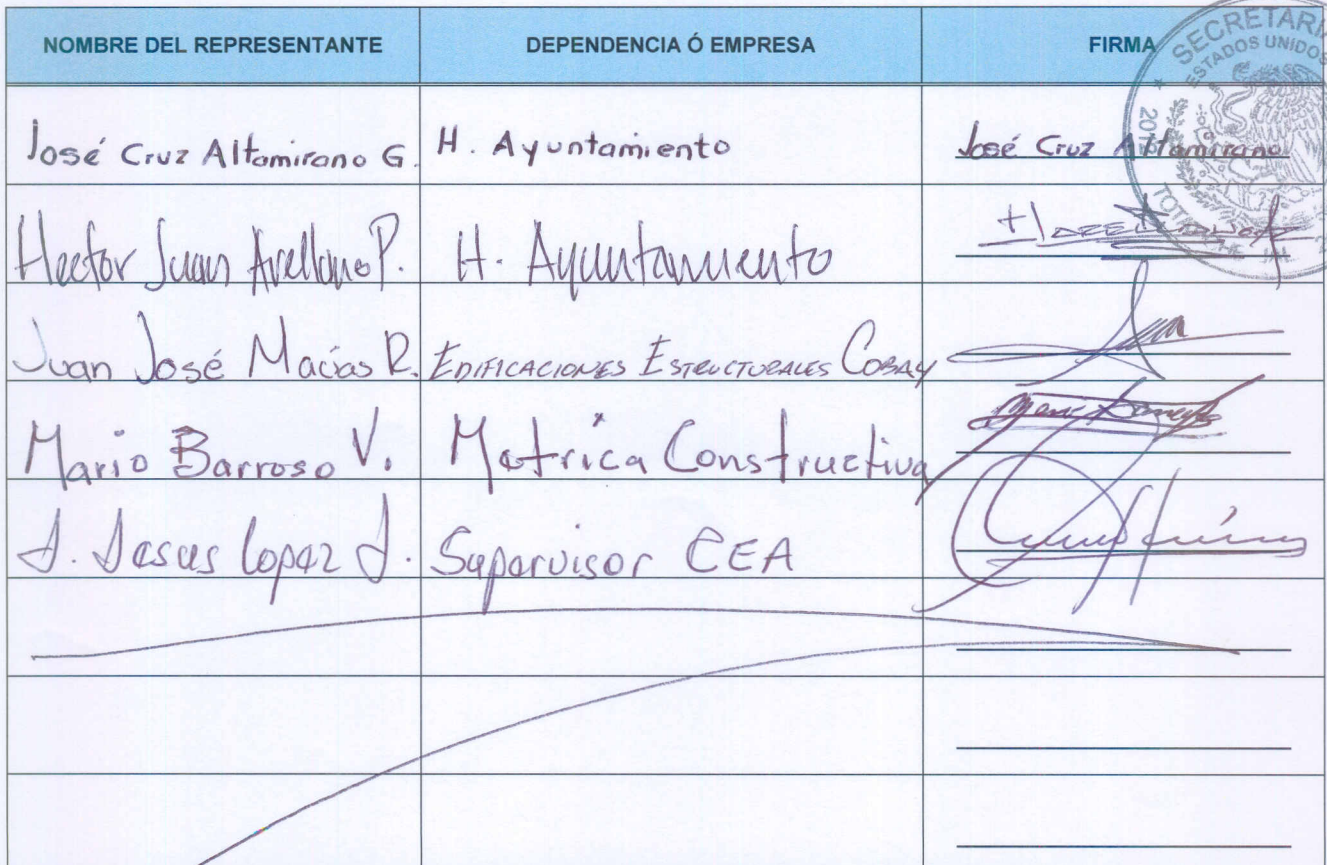 NOMBRE DEL REPRESENTANTE DEPENDENCIA Ó EMPRESA FIRMA
SECRETARI
ESTADOS UNIDOS
José Cruz Altamirano G. H. Ayuntamiento José Cruz Altamirano
Hector Juan Arellano P. H. Ayuntamiento
Juan José Macías R. EDIFICACIONES ESTRUCTURALES COBAY
Mario Barroso V. Matrica Constructiva
J. Jesus Lopez J. Supervisor CEA